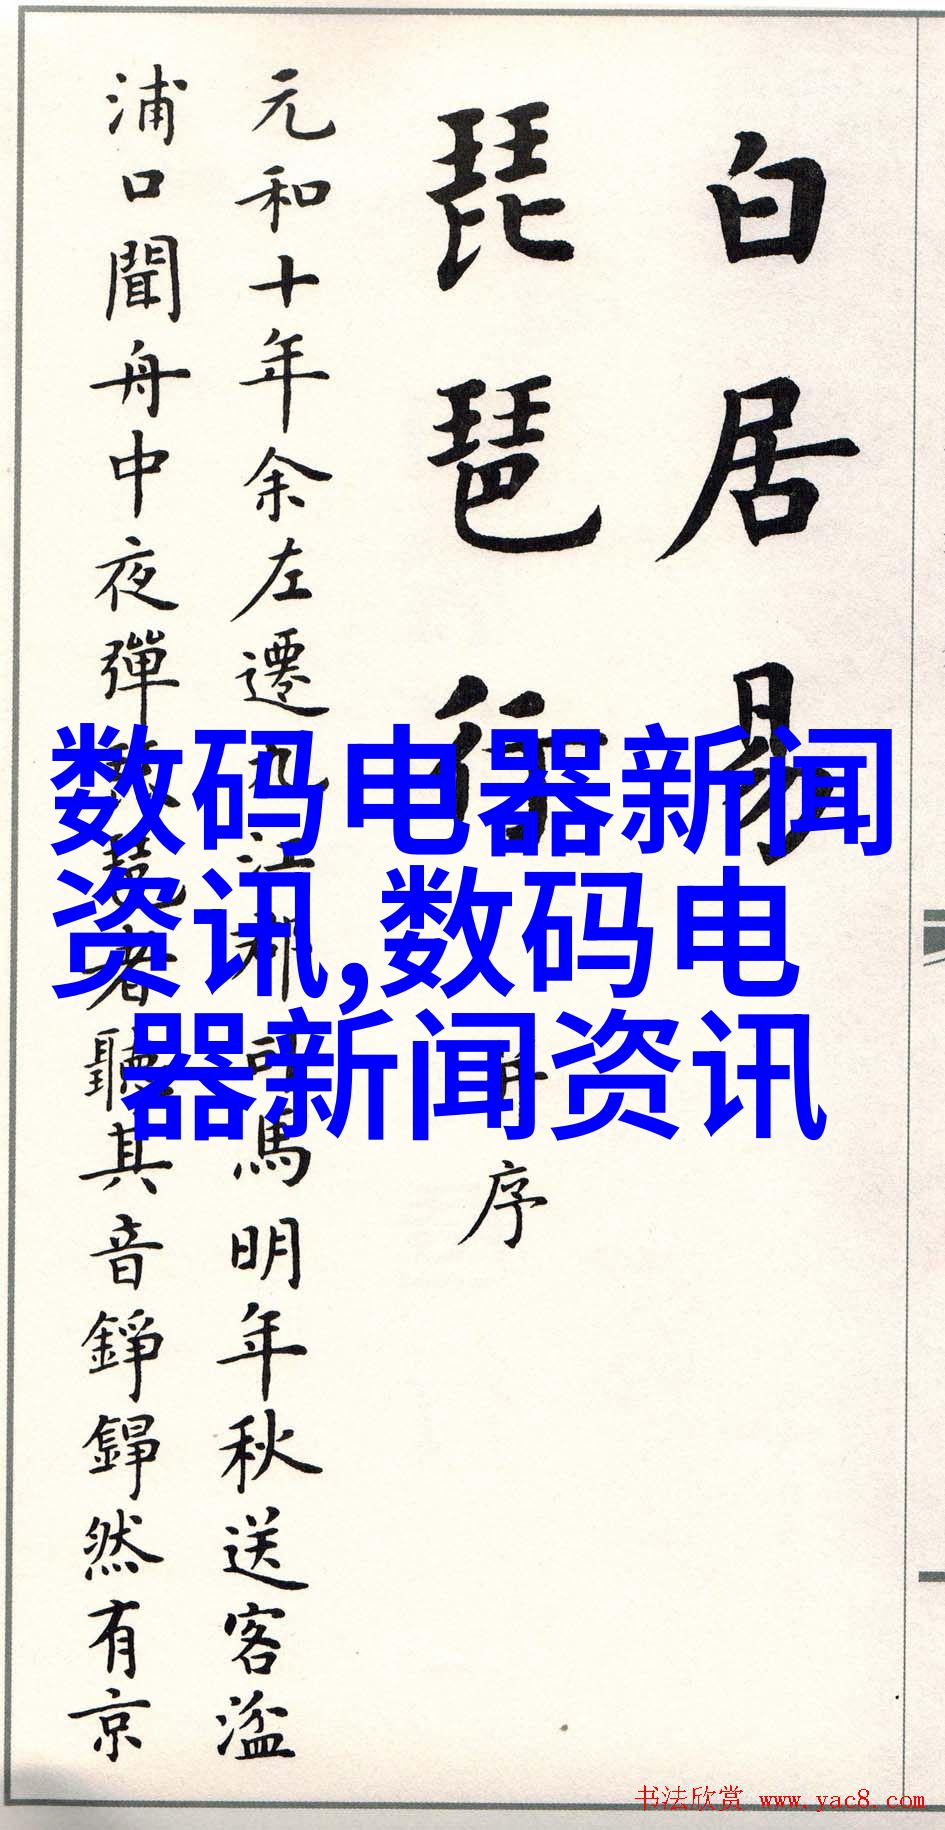 白居易
琵琶行
并序
元和十年余左遷九江郡司馬明年秋送客湓
浦口聞舟中夜彈琵琶者聽其音錚錚然有京
数码电器新闻
资讯,数码电
器新闻资讯
书法欣赏 www.yac8.com